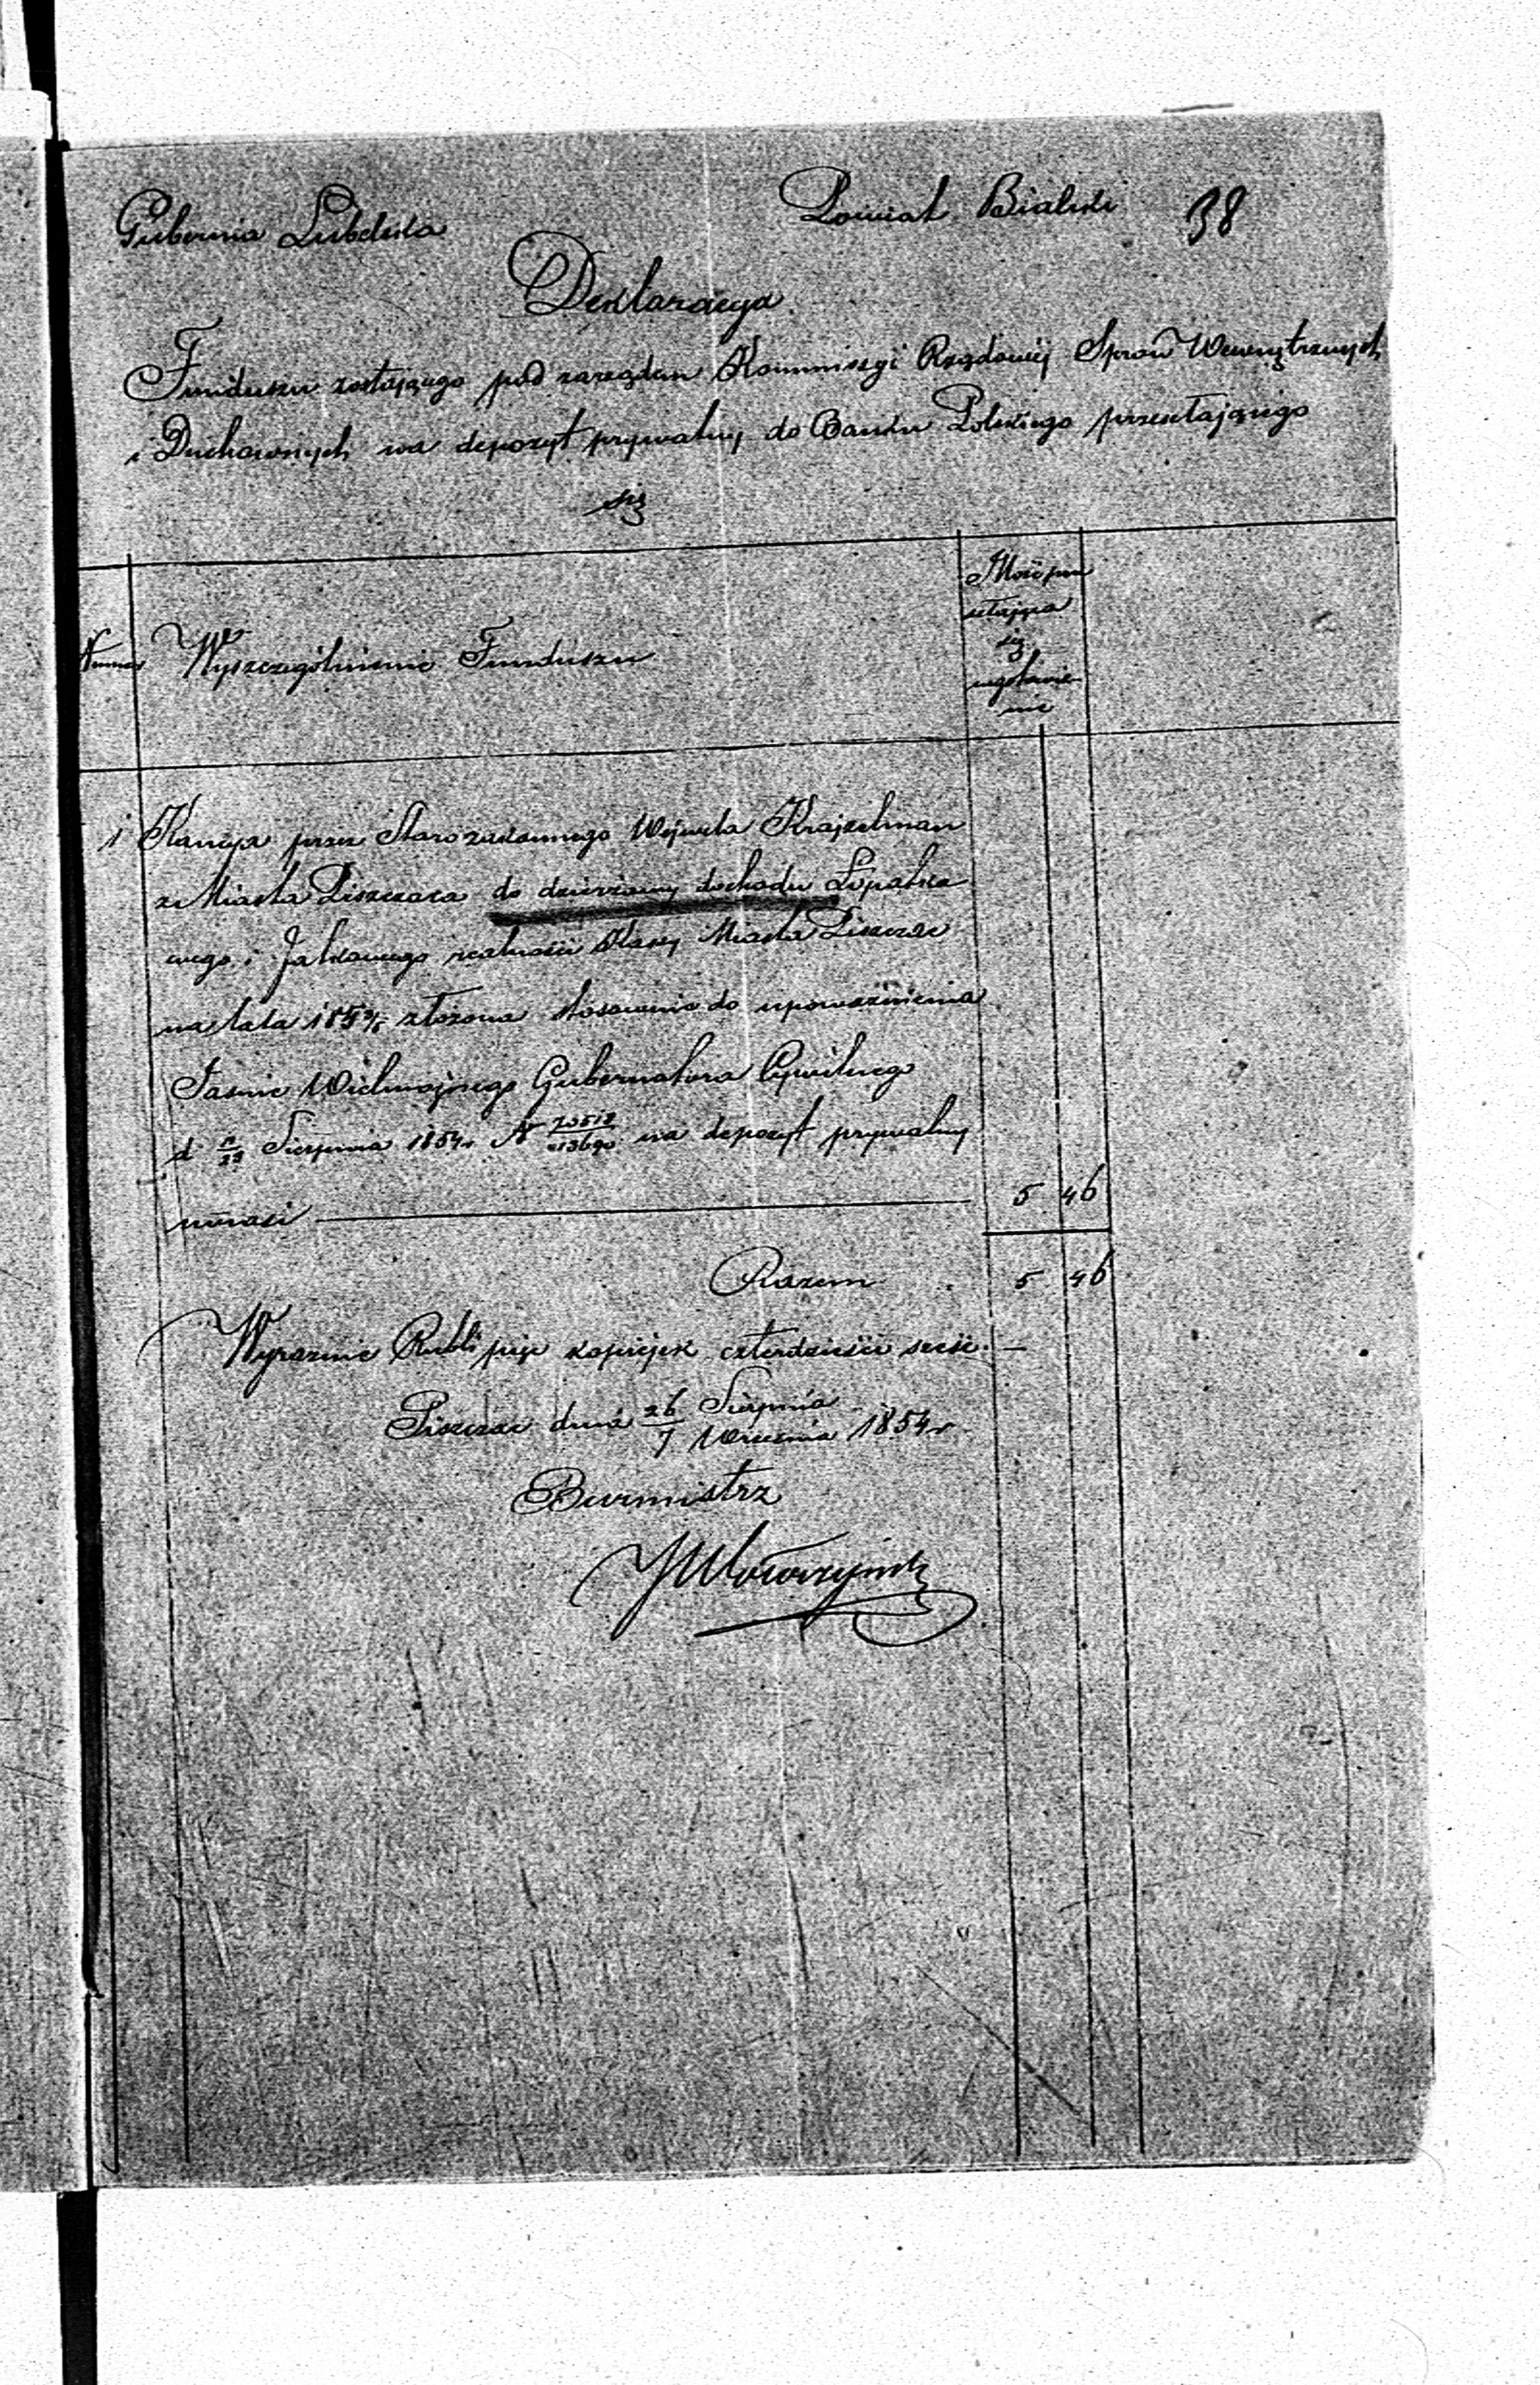 Gubernia Lubelska
Powiat Bialski 38
Deklaracya
Funduszu zostającego pod zarządem Kommissyi Rządowéj Spraw Wewnętrznych
i Duchownych na depozyt prywatny do Banku Polskiego przesełającego
się
Numer
Wyszczególnienie Funduszu
Ilość prze
sełająca
się
w gotowiź
nie
1 Kaucya przez Starozakonnego Krajzelman
z Miasta Piszczaca do dzierżawy dochodu
wego i Jatkowego Kassy Miasta Piszczac
na lata złożona stosownie do upoważnienia
Jaśnie Wielmożnego Gubernatora Cywilnego
d Sierpnia 1854 r N na depozyt prywatny
wnosi 5 46
Razem 5 46
Wyraznie Rubli pięc kopiejek czterdzieści sześć. —
Piszczac dnia 26/7 Sierpnia/Września 1854 r
Burmistrz